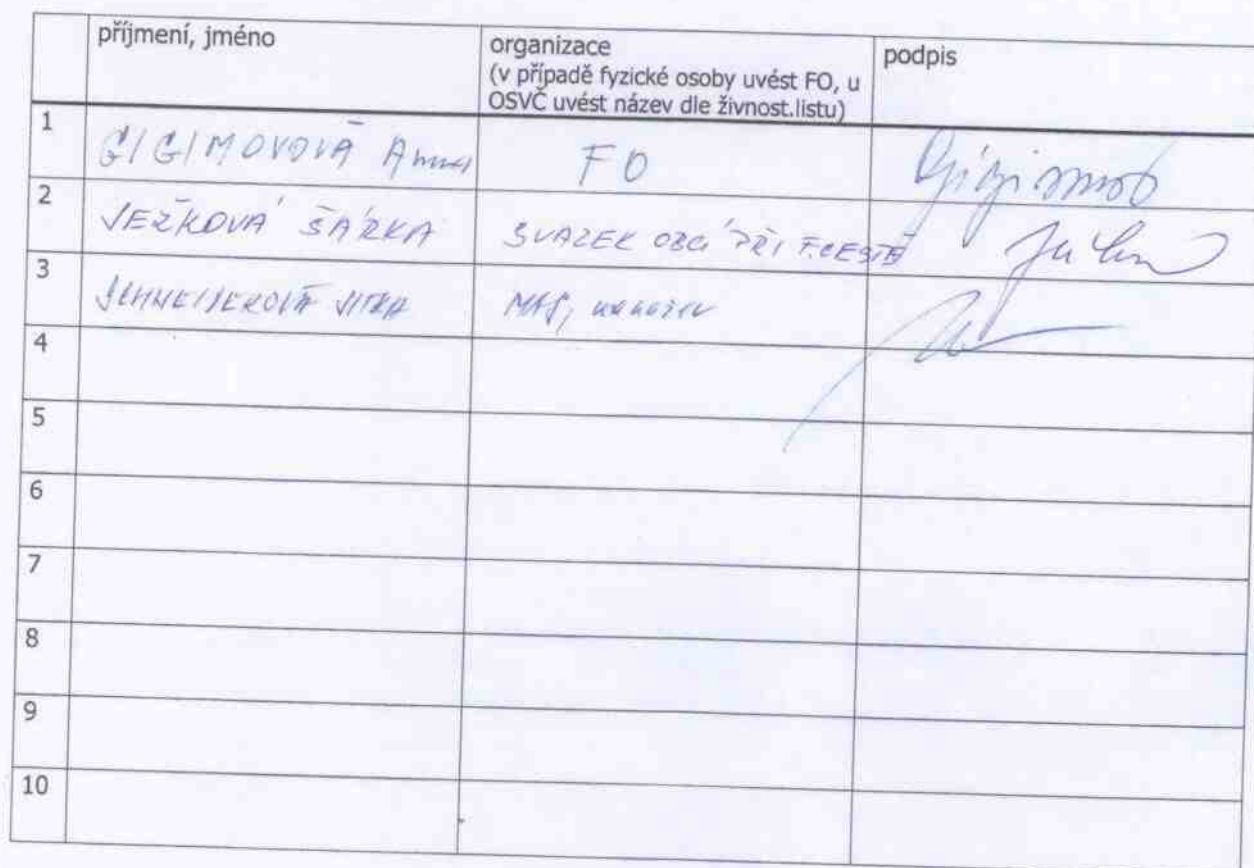 příjmení, jméno
organizace
(v případě fyzické osoby uvést FO, u
OSVČ uvést název dle živnost.listu)
podpis
1 GIGIMOVOVÁ Anna FO
2 JEŽKOVÁ ŠÁRKA SVAZEK OBCÍ PŘI F.CESTĚ
3 SCHNEIDEROVÁ JITKA MAS,
4
5
6
7
8
9
10